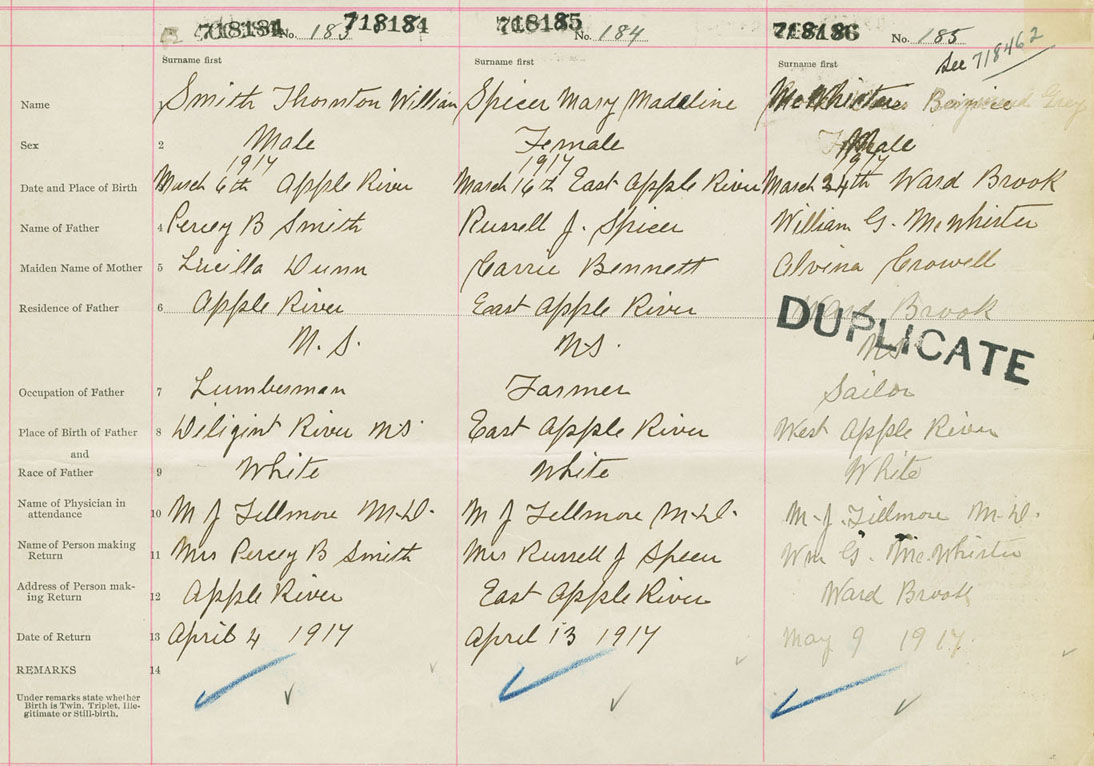 718184 No. 183 718184 718185 No. 184 718186 No. 185
See 718462
Surname first Surname first Surname first
Name Smith Thornton William Spicer Mary Madeline McWhirter
Sex 2 Male Female Male
1917 1917 1917
Date and Place of Birth March 6th Apple River March 16th East Apple River March 24th Ward Brook
Name of Father 4 Percy B Smith Russell J. Spicer William G. McWhirter
Maiden Name of Mother 5 Lucilla Dunn Carrie Bennett Alvina Crowell
Residence of Father 6 Apple River East Apple River Ward Brook
N.S. NS. NS
DUPLICATE
Occupation of Father 7 Lumberman Farmer Sailor
Place of Birth of Father 8 Diligint River NS East Apple River West Apple River
and
Race of Father 9 White White White
Name of Physician in
attendance 10 M J Fillmore M.D. M J Fillmore M.D. M.J. Fillmore M.D.
Name of Person making
Return 11 Mrs Percey B Smith Mrs Russell J Spicer Wm G. McWhirter
Address of Person mak-
ing Return 12 Apple River East Apple River Ward Brook
Date of Return 13 April 4 1917 April 13 1917 May 9 1917.
REMARKS 14
Under remarks state whether
Birth is Twin, Triplet, Ille-
gitimate or Still-birth.